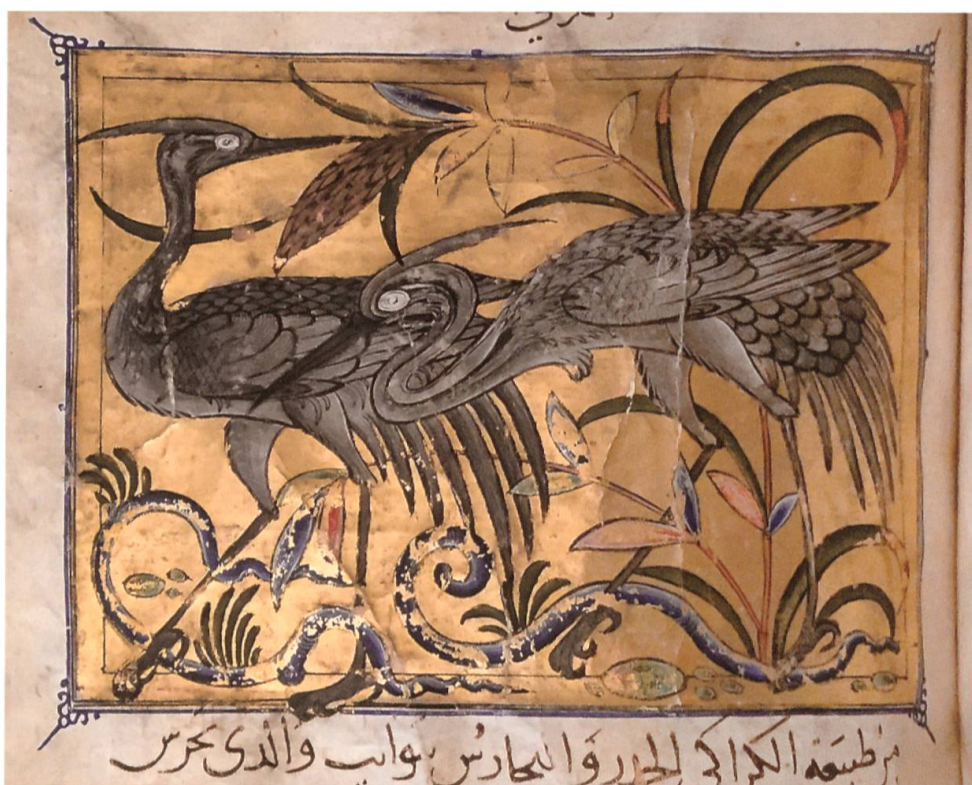 من طبيعة الكراكي الحذر وَالتحارسُ بنوايب وَالذى يَحرس